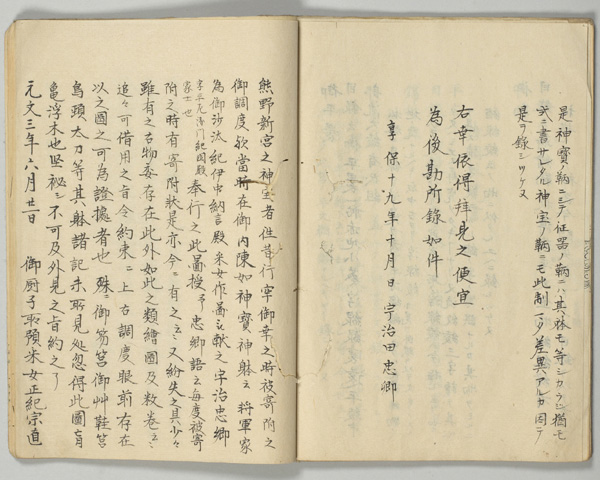 是神寳ノ鞆ニシテ征器ノ鞆ニハ其躰モ等シカラシ猶モ
式書サレタル神宝ノ鞆ニモ此制ニ少差異アルカ因テ
是ヲ錄シツケヌ
右幸依得拜見之便宜
為後勘所錄如件
享保十九年十月日 宇治田忠郷
熊野新宮之神宝者往昔行宰御幸之時被寄附之
御調度欤當時在御内陳如神寳神躰云將軍家
為御沙汰紀伊中納言殿采女作畵ヲ献之宇治忠郷
字平左衛門紀国殿
家士也
奉行之此畵授予忠郷語云毎度被寄
附之時有寄附状是亦今ニ有之云又紛失之具少々
雖有之古物委存在此外如此之類繪圖及数巻云
追々可借用之旨令約束ニ上古調度眼前存在
以之圖之可為證據者也殊ニ御笏筥御艸鞋筥
烏頭太刀等其躰諸記未所見処忽得此圖盲
亀浮木也堅秘云不可及外見之旨約之了
元文三年六月廿一日 御厨子所預采女正紀宗直